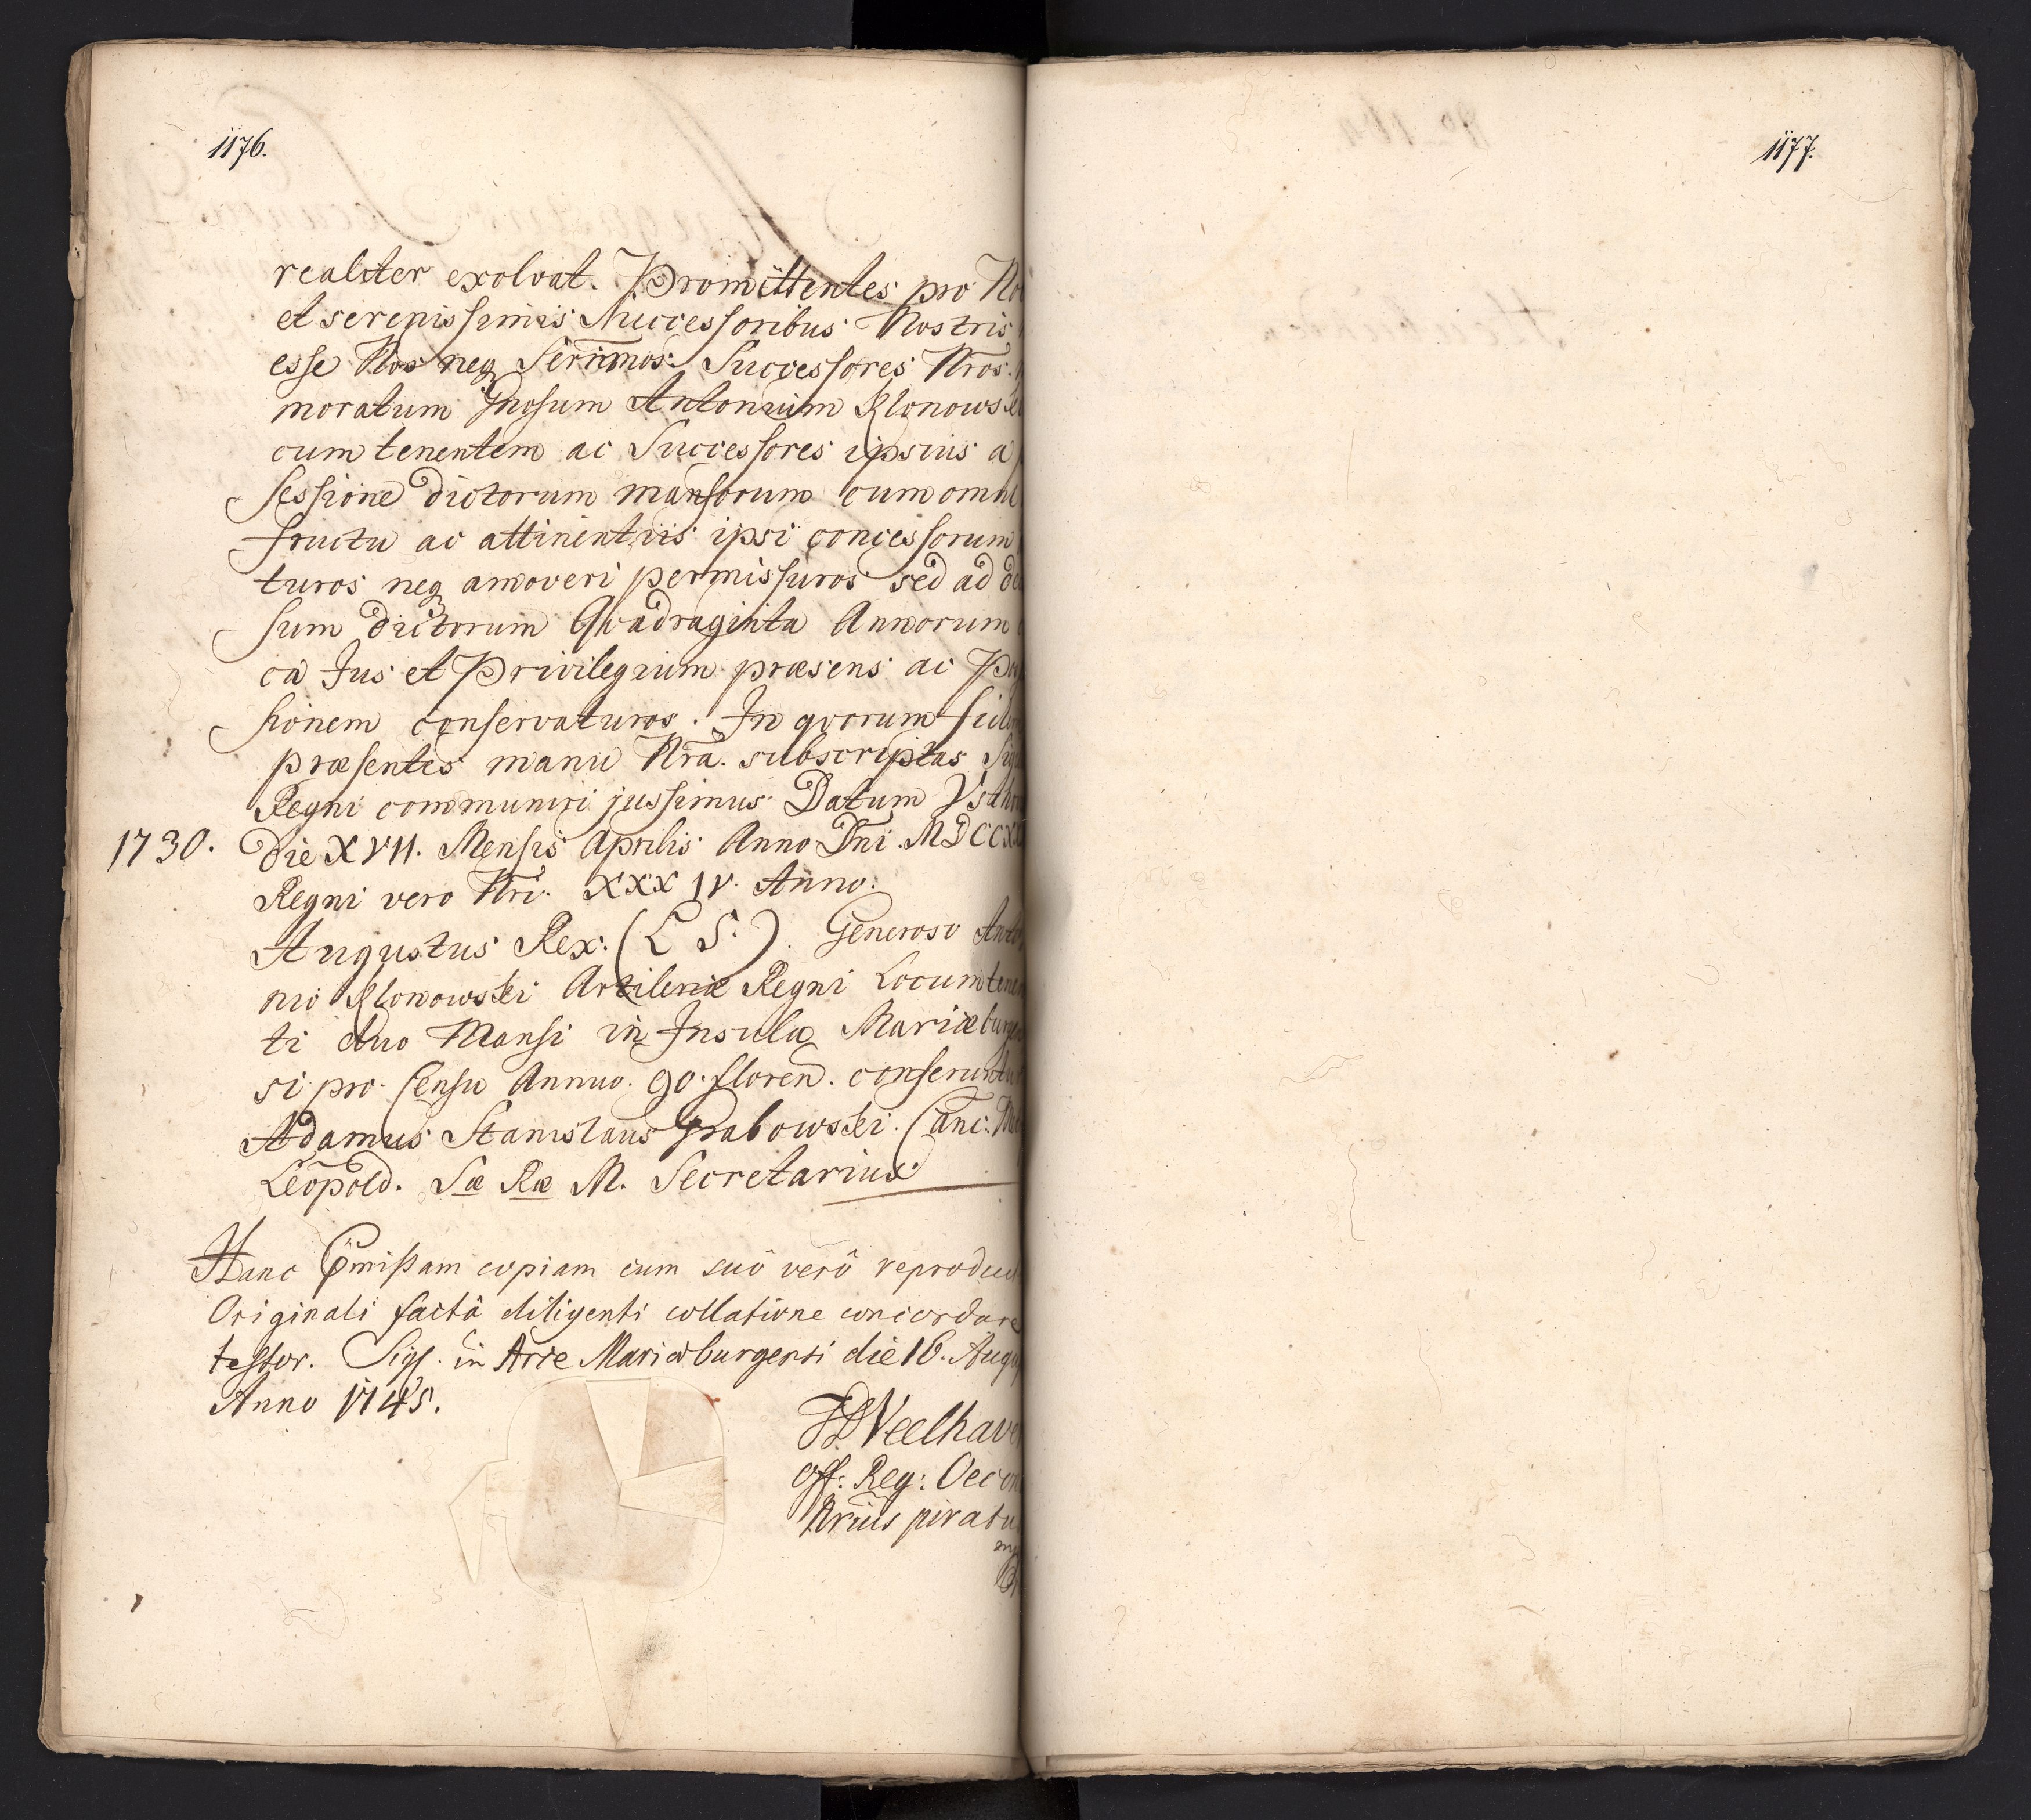 1176.
realiter exolvat. Promittentes pro No
et serenissimis Successoribus Nostris
esse Nos neq Serimos. Successores Nros.
moratum Gnosum Antonium Klonowsk
cum tenentem ac Successores ipsius a
sessione dictorum mansorum cum omni
fructu ac attinentiis ipsi concessorum
turos neq amoveri permissuros sed ad de
sum dictorum Quadraginta Annorum
ca Jus et Privilegium præsens ac Po
sionem conservaturos. In qvorum fid
præsentes manu Nra. subscriptas Sig
Regni communiri jussimus. Datum
1730. Die XVII. Mensis Aprilis Anno Dni. MDCCX
Regni vero Nri. XXXIV. Anno.
Augustus Rex. (L S.). Generoso Anto
nio Klonowski Artileriæ Regni Locumtenen
ti duo Mansi in Insula Mariæburgen
si pro Censu Annuo. 90. floren. conferuntu
Adamus Stanislaus Grabowski. Canc.
Leopold. Sæ Ræ M. Secretarius
Hanc præmissam copiam cum suô verô reproduc
Originali factâ diligenti collatione concordare
testor. Sigs. in Arce Mariæburgensi die 16. Augu
Anno 1745.
Veelhaven
Off: Reg: Oecon
Nrius juratu
1177.